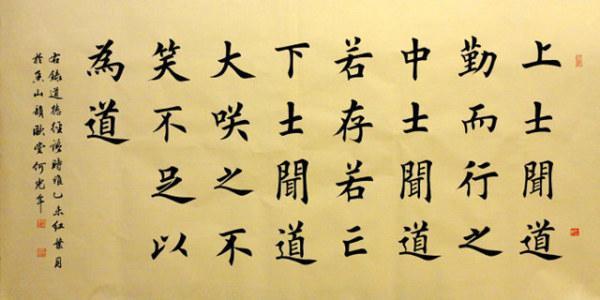 上士聞道
勤而行之
中士聞道
若存若亡
下士聞道
大咲之不
笑不足以
為道
右錄道德經語時維乙未紅葉月
於魚山
堂何光年